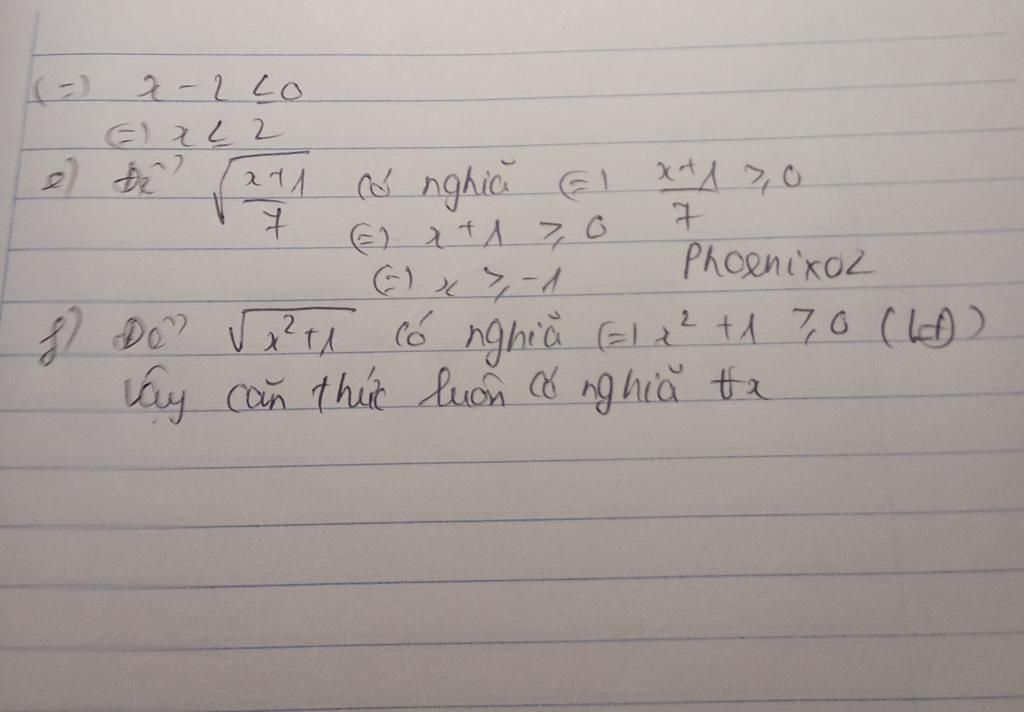 (=) x - 2 ≤ 0
(=) x ≤ 2
e) Để √((x+1)/7) có nghĩa (=) (x+1)/7 ≥ 0
(=) x + 1 ≥ 0
(=) x ≥ -1 Phoenixo2
f) Để √(x²+1) có nghĩa (=) x² + 1 ≥ 0 (lđ)
Vậy căn thức luôn có nghĩa ∀x